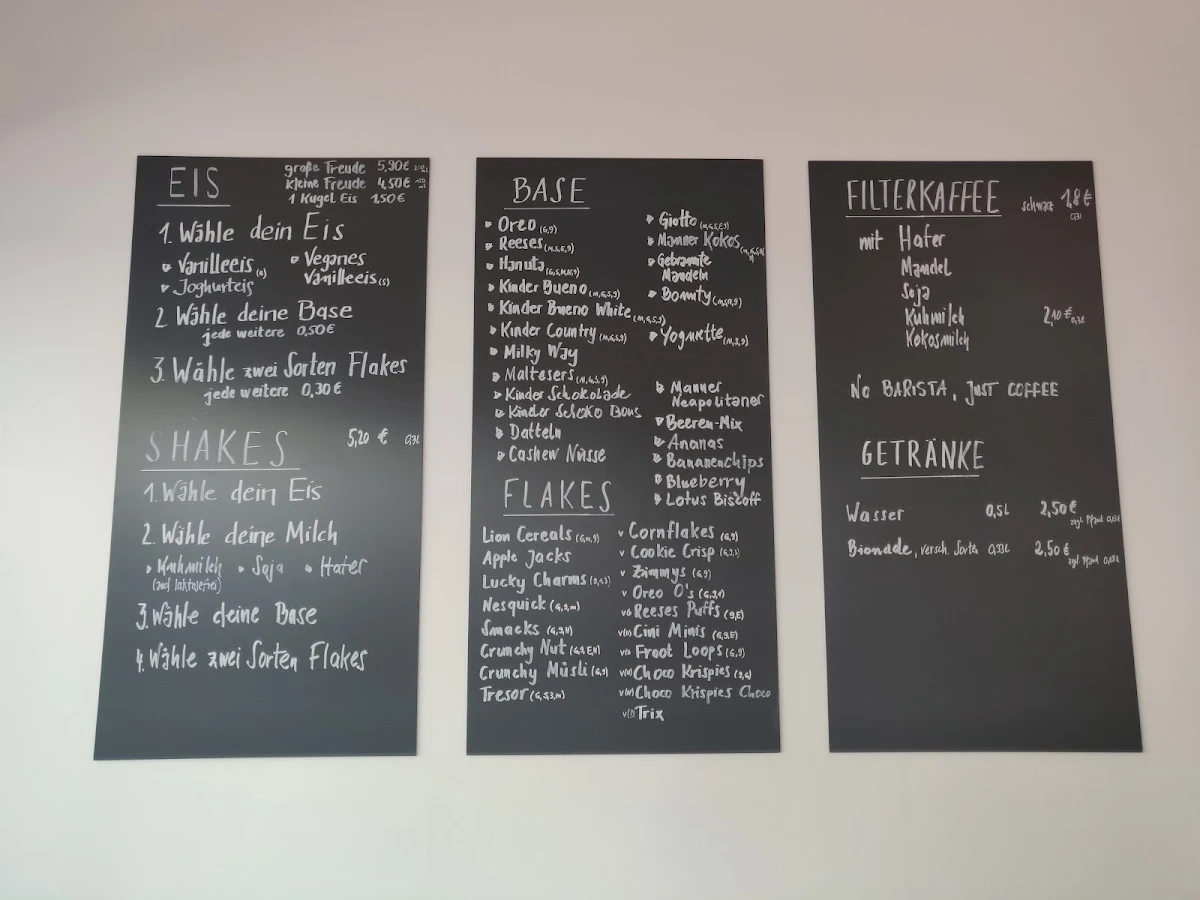 EIS
große Freude 5,90€
kleine Freude 4,50€
1 Kugel Eis 1,50€
1. Wähle dein Eis
Vanilleeis
Joghurteis
Veganes
Vanilleeis (S)
2 Wähle deine Base
jede weitere 0,50€
3. Wähle zwei Sorten Flakes
jede weitere 0,30€
SHAKES 5,20 € 0,3L
1. Wähle dein Eis
2. Wähle deine Milch
Kuhmilch • Soja • Hafer
(und laktosefrei)
3. Wähle deine Base
4. Wähle zwei Sorten Flakes
BASE
Oreo (G,9)
Reeses (M,S,E,9)
Hanuta
Kinder Bueno (M,G,S,9)
Kinder Bueno White (M,G,S,9)
Kinder Country (M,G,S,9)
Milky Way
Maltesers (M,G,S,9)
Kinder Schokolade
Kinder Schoko Bons
Datteln
Cashew Nüsse
Giotto
Manner Kokos
Gebrannte
Mandeln
Bounty
Yogurette (M,S,9)
Manner
Neapolitaner
Beeren-Mix
Ananas
Bananenchips
Blueberry
Lotus Biscoff
FLAKES
Lion Cereals (G,m,9)
Apple Jacks
Lucky Charms
Nesquick (G,9,m)
Smacks
Crunchy Nut
Crunchy Müsli (G,9)
Tresor
v Cornflakes (G,9)
v Cookie Crisp
v Zimmys (G,9)
v Oreo O's
Reeses Puffs (9,E)
Cini Minis (G,9,E)
Froot Loops (G,9)
Choco Krispies
Choco Krispies Choco
Trix
FILTERKAFFEE schwarz 1,8€
0,3L
mit Hafer
Mandel
Soja
Kuhmilch 2,10€ 0,3L
Kokosmilch
NO BARISTA, JUST COFFEE
GETRÄNKE
Wasser 0,5L 2,50€
zzgl. Pfand 0,15€
Bionade, versch. Sorten 0,33L 2,50€
zzgl. Pfand 0,08€